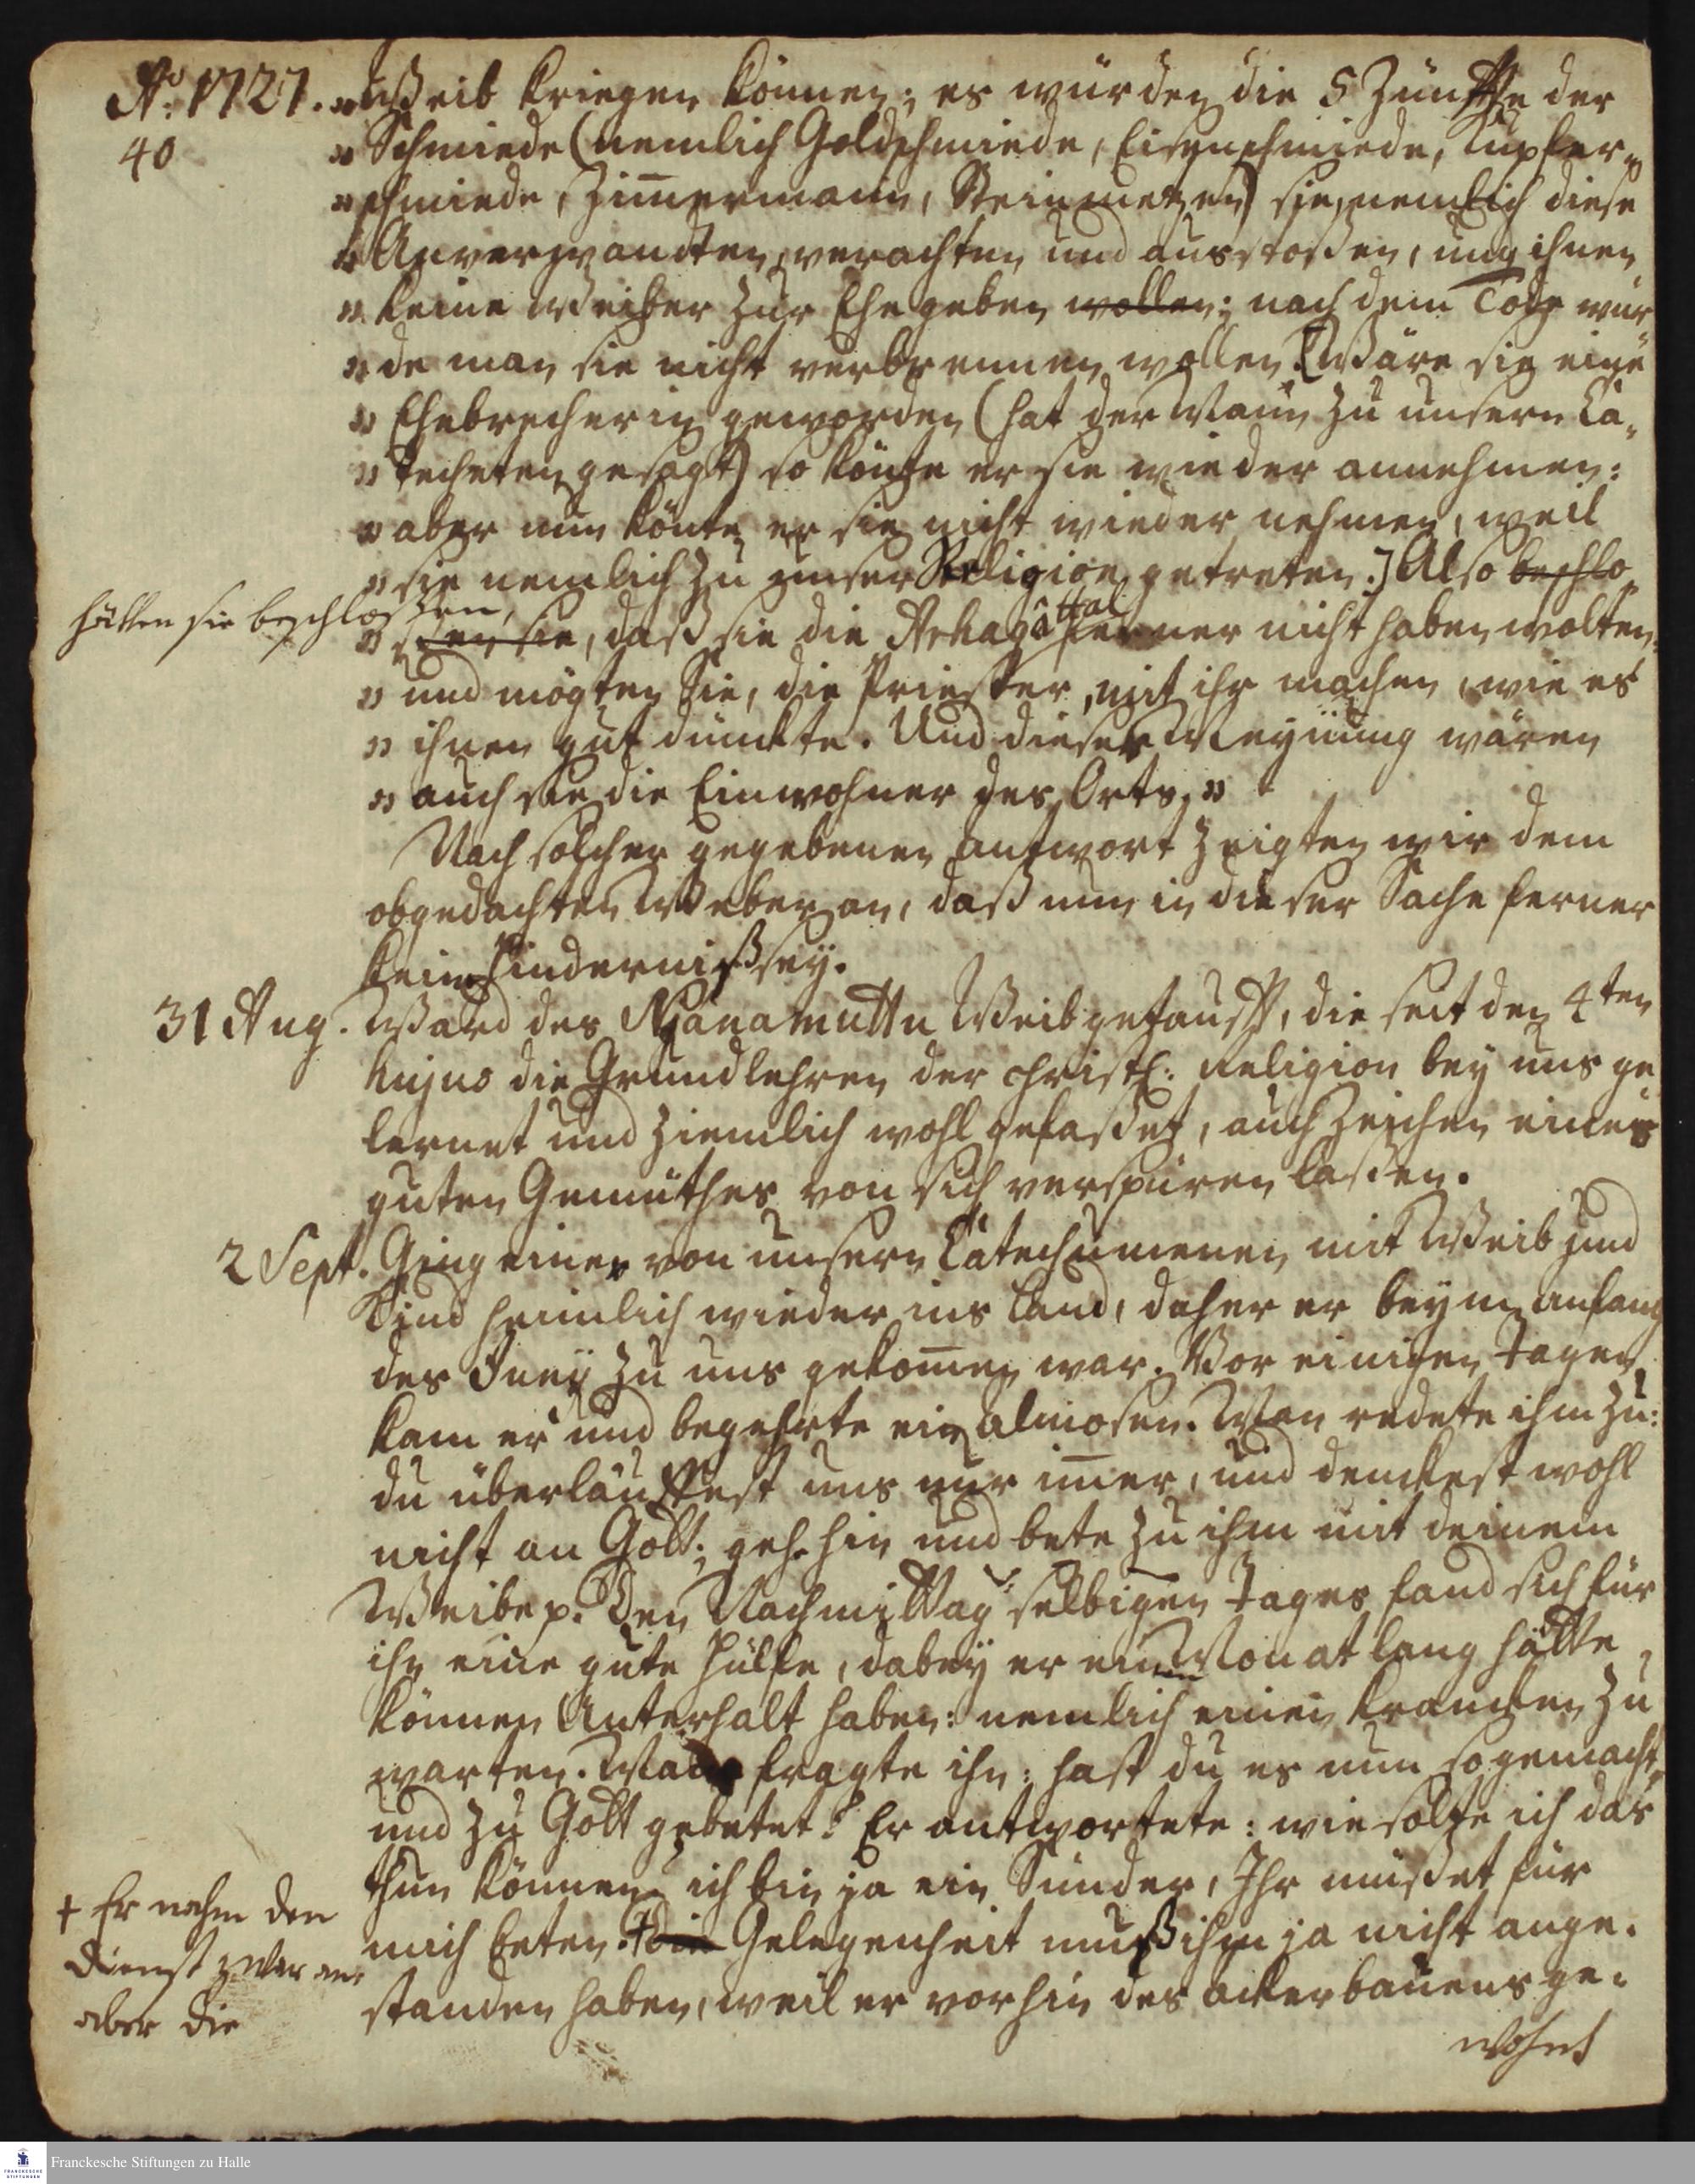 Aº. 1727.
40
" Weib kriegen können; es würden die 5 Zünffte der
" Schmiede (nemlich Goldschmiede, Eisenschmiede, Kupfer-
" schmiede, Zim̅ermann, Steinmetzen) sie, nemlich diese
" Anverwandten, verachten und ausstoßen, und ihnen
" keine Weiber zur Ehe geben wollen; nach dem Tode wür-
" de man sie nicht verbrennen wollen. [Wäre sie eine
" Ehebrecherin geworden (hat der Mann zu unsern Ca-
" techeten gesagt) so könte er sie wieder annehmen:
" aber nun könte er sie nicht wieder nehmen, weil
" sie nemlich zu unser Religion getreten.] Also beschlo-
hätten sie beschloßen,
" ßen sie, daß sie die Arhagâttal ferner nicht haben wolten:
" und mögten Sie, die Priester, mit ihr machen, wie es
" ihnen gut dünckte. Und dieser Meynung wären
" auch sie die Einwohner des Orts. "
Nach solcher gegebenen antwort zeigten wir dem
obgedachten Weber an, daß nun in dieser Sache ferner
kein Hinderniß sey.
31 Aug. Ward des Njânamuttu Weib getaufft, die seit den 4ten
hujus die Grundlehren der christl: Religion bey uns ge-
lernet und ziemlich wohl gefaßet, auch Zeichen eines
guten Gemüthes von sich verspüren laßen.
2 Sept. Ging einer von unsern Catechumenen mit Weib und
Kind heimlich wieder ins Land, daher er beym anfang
des Junÿ zu uns gekom̅en war. Vor einigen Tagen
kam er und begehrte ein almosen. Man redete ihm zu:
du überläuffest uns nur im̅er, und denckest wohl
nicht an Gott; geh hin und bete zu ihm mit deinem
Weibe p. Den Nachmittag selbigen Tages fand sich für
ihn eine gute Hülfe, dabey er einen Monat lang hätte
können Unterhalt haben: nemlich einen Krancken zu
warten. Man fragte ihn: hast du es nun so gemacht,
und zu Gott gebetet? Er antwortete: wie solte ich das
thun können, ich bin ja ein Sünder, Ihr müßet für
mich beten. + die Gelegenheit muß ihm ja nicht ange-
+ Er nahm den
Dienst zwar an,
aber die
standen haben, weil er vorhin des ackerbauens ge-
wohnt
Franckesche Stiftungen zu Halle